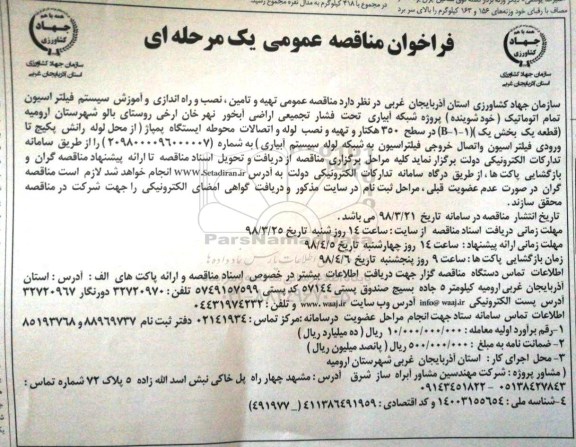 در مجموع با ۳۱۸ کیلوگرم به مدال نقره مجموع رسید.
مصاف با رقبای خود وزنه‌های ۱۵۶ و ۱۶۳ کیلوگرم را بالای سر برد
همه با هم
جهاد
کشاورزی
سازمان جهاد کشاورزی
استان آذربایجان غربی
فراخوان مناقصه عمومی یک مرحله ای
همه با هم
جهاد
کشاورزی
سازمان جهاد کشاورزی
استان آذربایجان غربی
سازمان جهاد کشاورزی استان آذربایجان غربی در نظر دارد مناقصه عمومی تهیه و تامین ، نصب و راه اندازی و آموزش سیستم فیلتر اسیون
تمام اتوماتیک ( خود شوینده ) پروژه شبکه آبیاری تحت فشار تجمیعی اراضی آبخور نهر خان ارخی روستای بالو شهرستان ارومیه
(قطعه یک بخش یک )(B-۱-۱) در سطح ۳۵۰ هکتار و تهیه و نصب لوله و اتصالات محوطه ایستگاه پمپاژ ( از محل لوله رانش پکیج تا
ورودی فیلتر اسیون واتصال خروجی فیلتراسیون به شبکه لوله سیستم آبیاری ) به شماره (۲۰۹۸۰۰۰۰۹۶۰۰۰۰۰۷) را از طریق سامانه
تدارکات الکترونیکی دولت برگزار نماید کلیه مراحل برگزاری مناقصه از دریافت و تحویل اسناد مناقصه تا ارائه پیشنهاد مناقصه گران و
بازگشایی پاکت ها ، از طریق درگاه سامانه تدارکات الکترونیکی دولت به آدرس www.Setadiran.ir انجام خواهد شد لازم است مناقصه
گران در صورت عدم عضویت قبلی ، مراحل ثبت نام در سایت مذکور و دریافت گواهی امضای الکترونیکی را جهت شرکت در مناقصه
محقق سازند .
تاریخ انتشار مناقصه در سامانه تاریخ ۹۸/۳/۲۱ می باشد .
مهلت زمانی دریافت اسناد مناقصه از سایت : ساعت ۱۴ روز شنبه تاریخ ۹۸/۳/۲۵
مهلت زمانی ارائه پیشنهاد : ساعت ۱۴ روز چهارشنبه تاریخ ۹۸/۴/۵
زمان بازگشایی پاکت ها : ساعت ۹ روز پنجشنبه تاریخ ۹۸/۴/۶
اطلاعات تماس دستگاه مناقصه گزار جهت دریافت اطلاعات بیشتر در خصوص اسناد مناقصه و ارائه پاکت های الف : آدرس : استان
آذربایجان غربی ارومیه کیلومتر ۵ جاده بسیج صندوق پستی ۵۷۱۴۴ کد پستی ۵۷۴۹۱۵۷۵۹۹ تلفن : ۳۲۷۲۰۹۷۰ دورنگار ۳۲۷۲۰۹۶۷
آدرس پست الکترونیکی info@ waaj.ir آدرس وب سایت www. waaj.ir و تلفن : ۰۴۴۳۱۹۷۴۲۳۲
اطلاعات تماس سامانه ستاد جهت انجام مراحل عضویت درسامانه : مرکز تماس : ۰۲۱۴۱۹۳۴ دفتر ثبت نام ۸۸۹۶۹۷۳۷ و ۸۵۱۹۳۷۶۸
۱-رقم برآورد اولیه معامله : ۱۰/۰۰۰/۰۰۰/۰۰۰ ریال ( ده میلیارد ریال )
۲- ضمانت نامه به مبلغ : ۵۰۰/۰۰۰/۰۰۰ ریال ( پانصد میلیون ریال )
۳- محل اجرای کار : استان آذربایجان غربی شهرستان ارومیه
( مشاور پروژه : شرکت مهندسین مشاور آبراه ساز شرق آدرس : مشهد چهار راه پل خاکی نبش اسد الله زاده ۵ پلاک ۷۲ شماره تماس :
۰۵۱۳۸۴۲۷۸۴۳ - ۰۹۱۴۳۴۵۱۸۲۲)
۴-شناسه ملی : ۱۴۰۰۳۱۵۵۶۵۴ و کد اقتصادی : ۴۱۱۳۸۶۴۹۱۹۵۹ ( _ ۴۹۱۹۷۷)